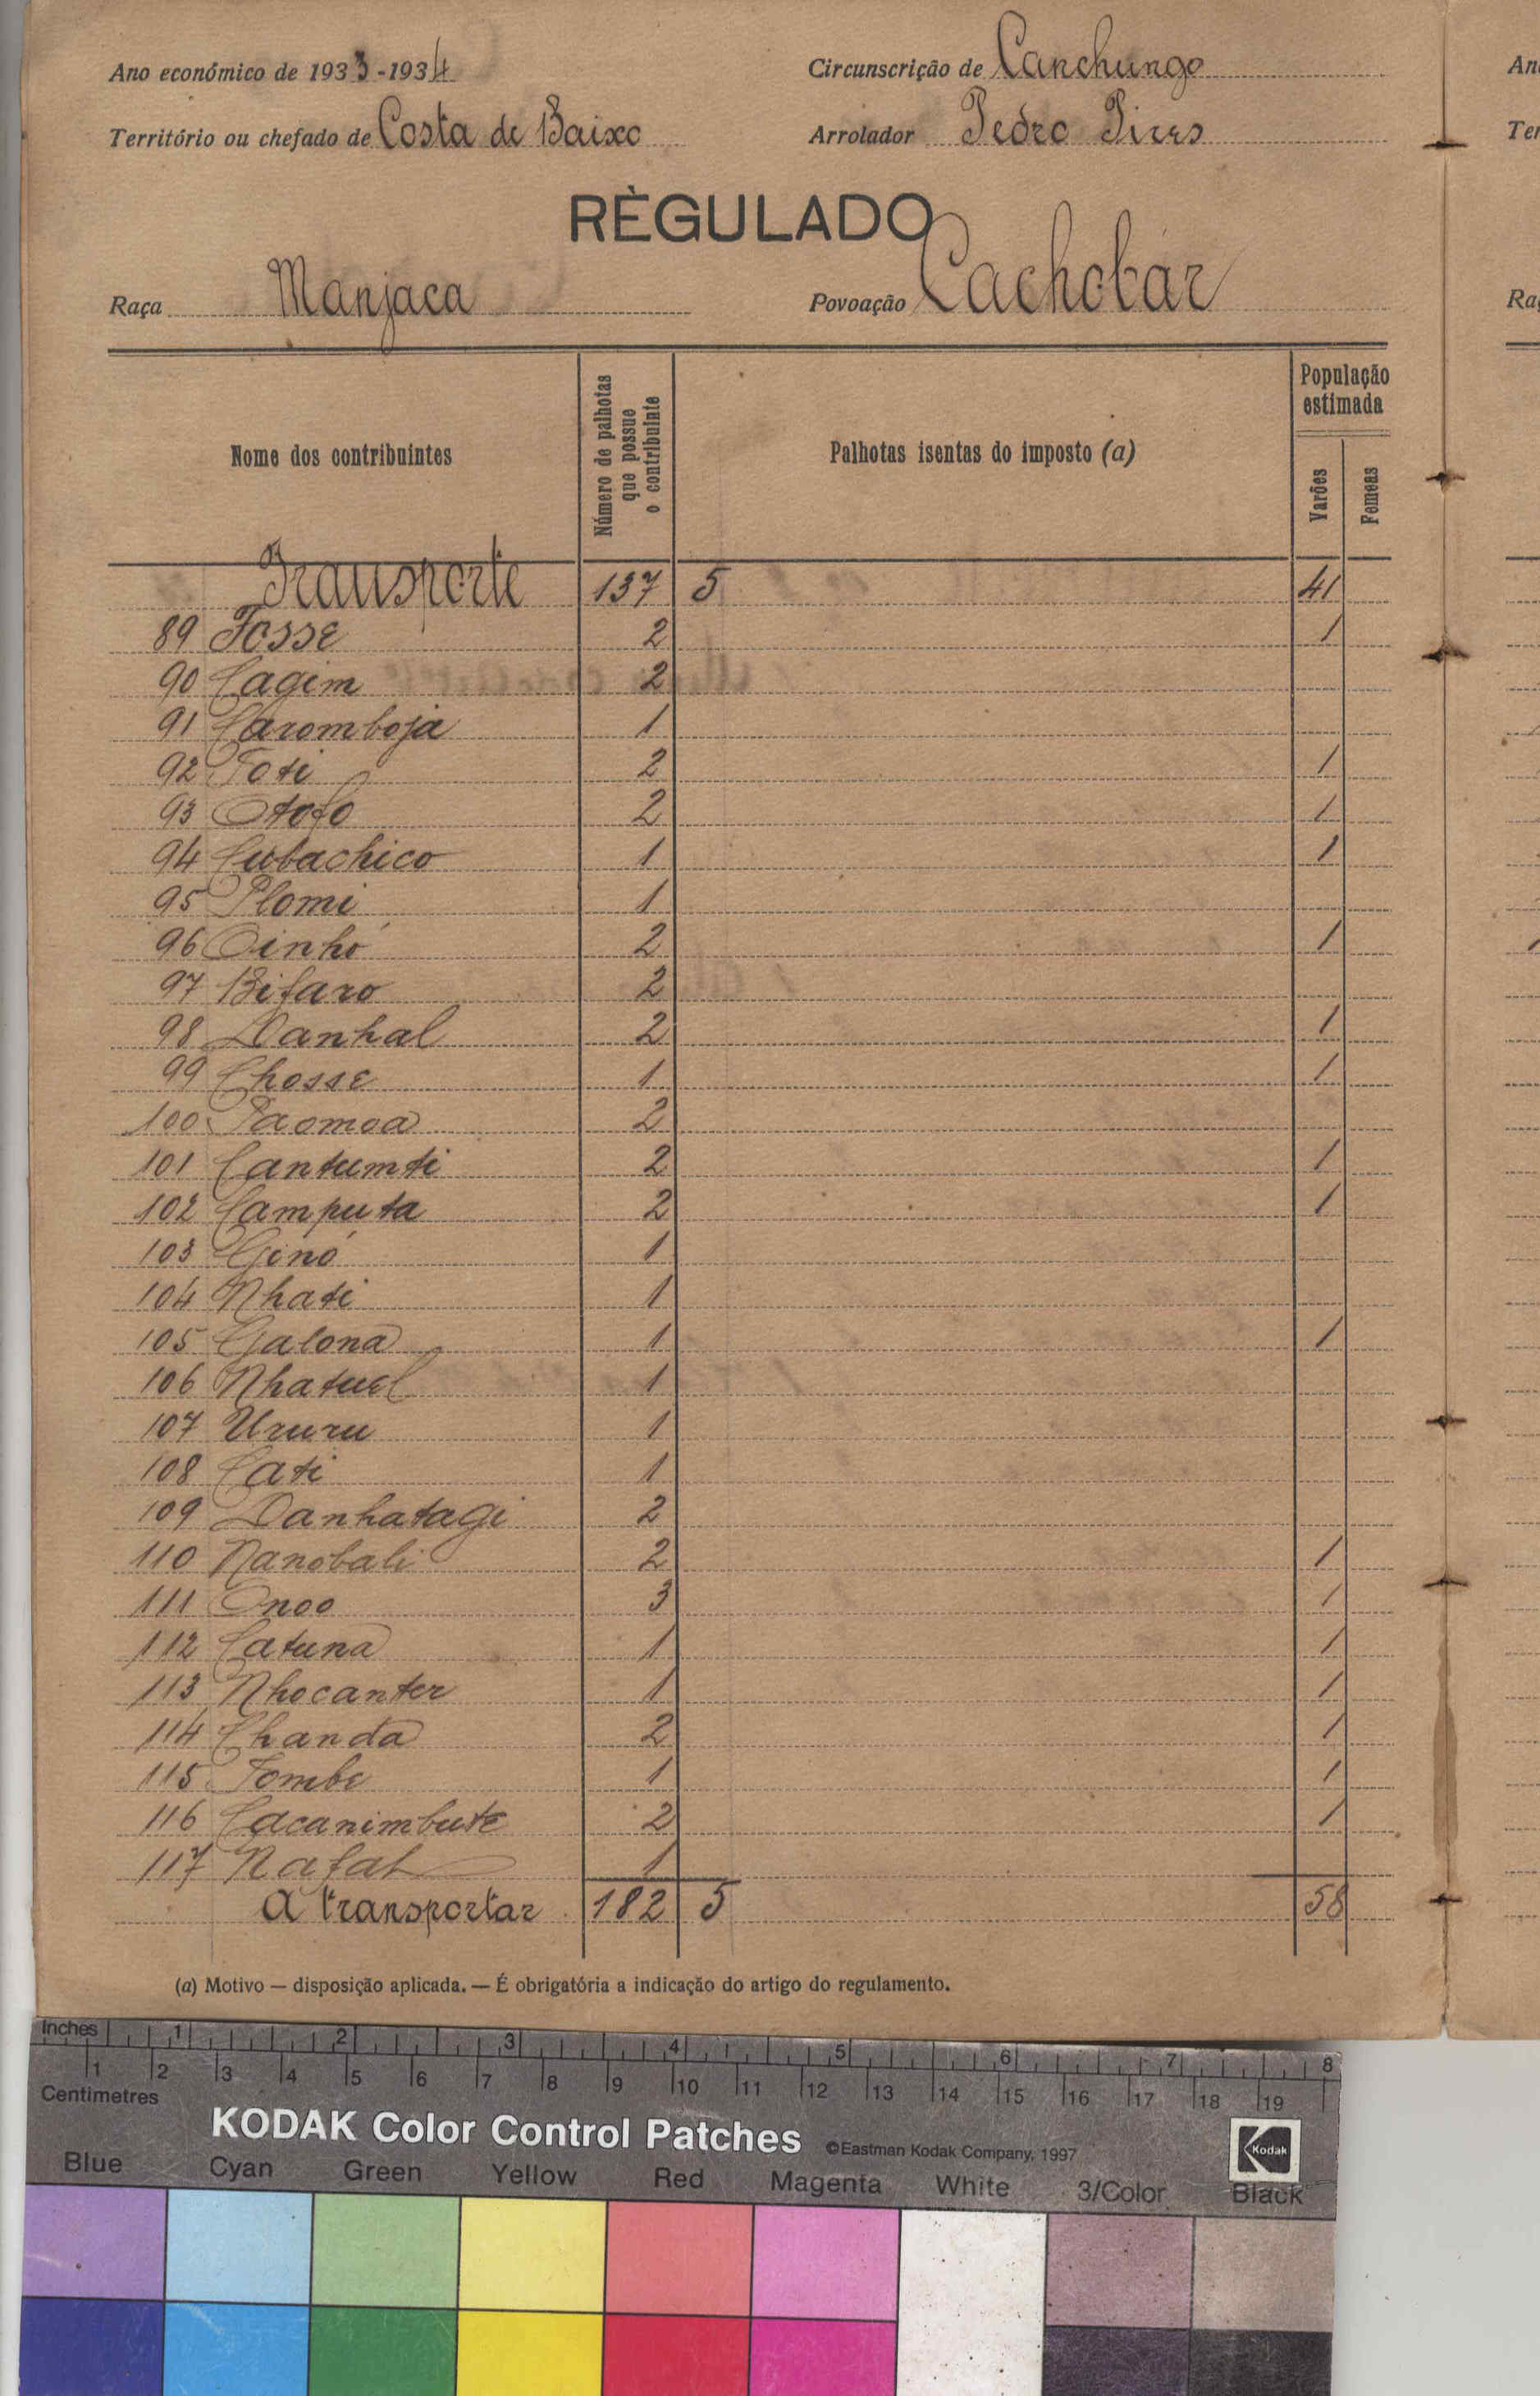 Ano económico de 1933-1934 Circunscrição de Canchungo
Território ou chefado de Costa de Baixo Arrolador Pedro Pires
RÈGULADO
Raça Manjaca Povoação Cachobar
Nome dos contribuintes
Número de palhotas que possue o contribuinte
Palhotas isentas do imposto (a)
População estimada
Varões
Femeas
Transporte 137 5 41
89 Fosse 2 1
90 Cagim 2
91 Caromboja 1
92 Toti 2 1
93 Otofo 2 1
94 Cubachico 1 1
95 Plomi 1
96 Oinhó 2 1
97 Bifaro 2
98 Danhal 2 1
99 Chosse 1 1
100 Paomoa 2
101 Cantumti 2 1
102 Camputa 2 1
103 Ginó 1
104 Nhati 1
105 Galona 1 1
106 Nhatuel 1
107 Ururu 1
108 Cati 1
109 Danhatagi 2
110 Nanobali 2 1
111 Onoo 3 1
112 Catuna 1 1
113 Nhocanter 1 1
114 Chanda 2 1
115 Tombe 1 1
116 Cacanimbute 2 1
117 Nafat 1
A transportar 182 5 58
(a) Motivo — disposição aplicada. — É obrigatória a indicação do artigo do regulamento.
Inches 1 2 3 4 5 6 7 8
1 2 3 4 5 6 7 8 9 10 11 12 13 14 15 16 17 18 19
Centimetres
KODAK Color Control Patches ©Eastman Kodak Company, 1997 Kodak
Blue Cyan Green Yellow Red Magenta White 3/Color Black